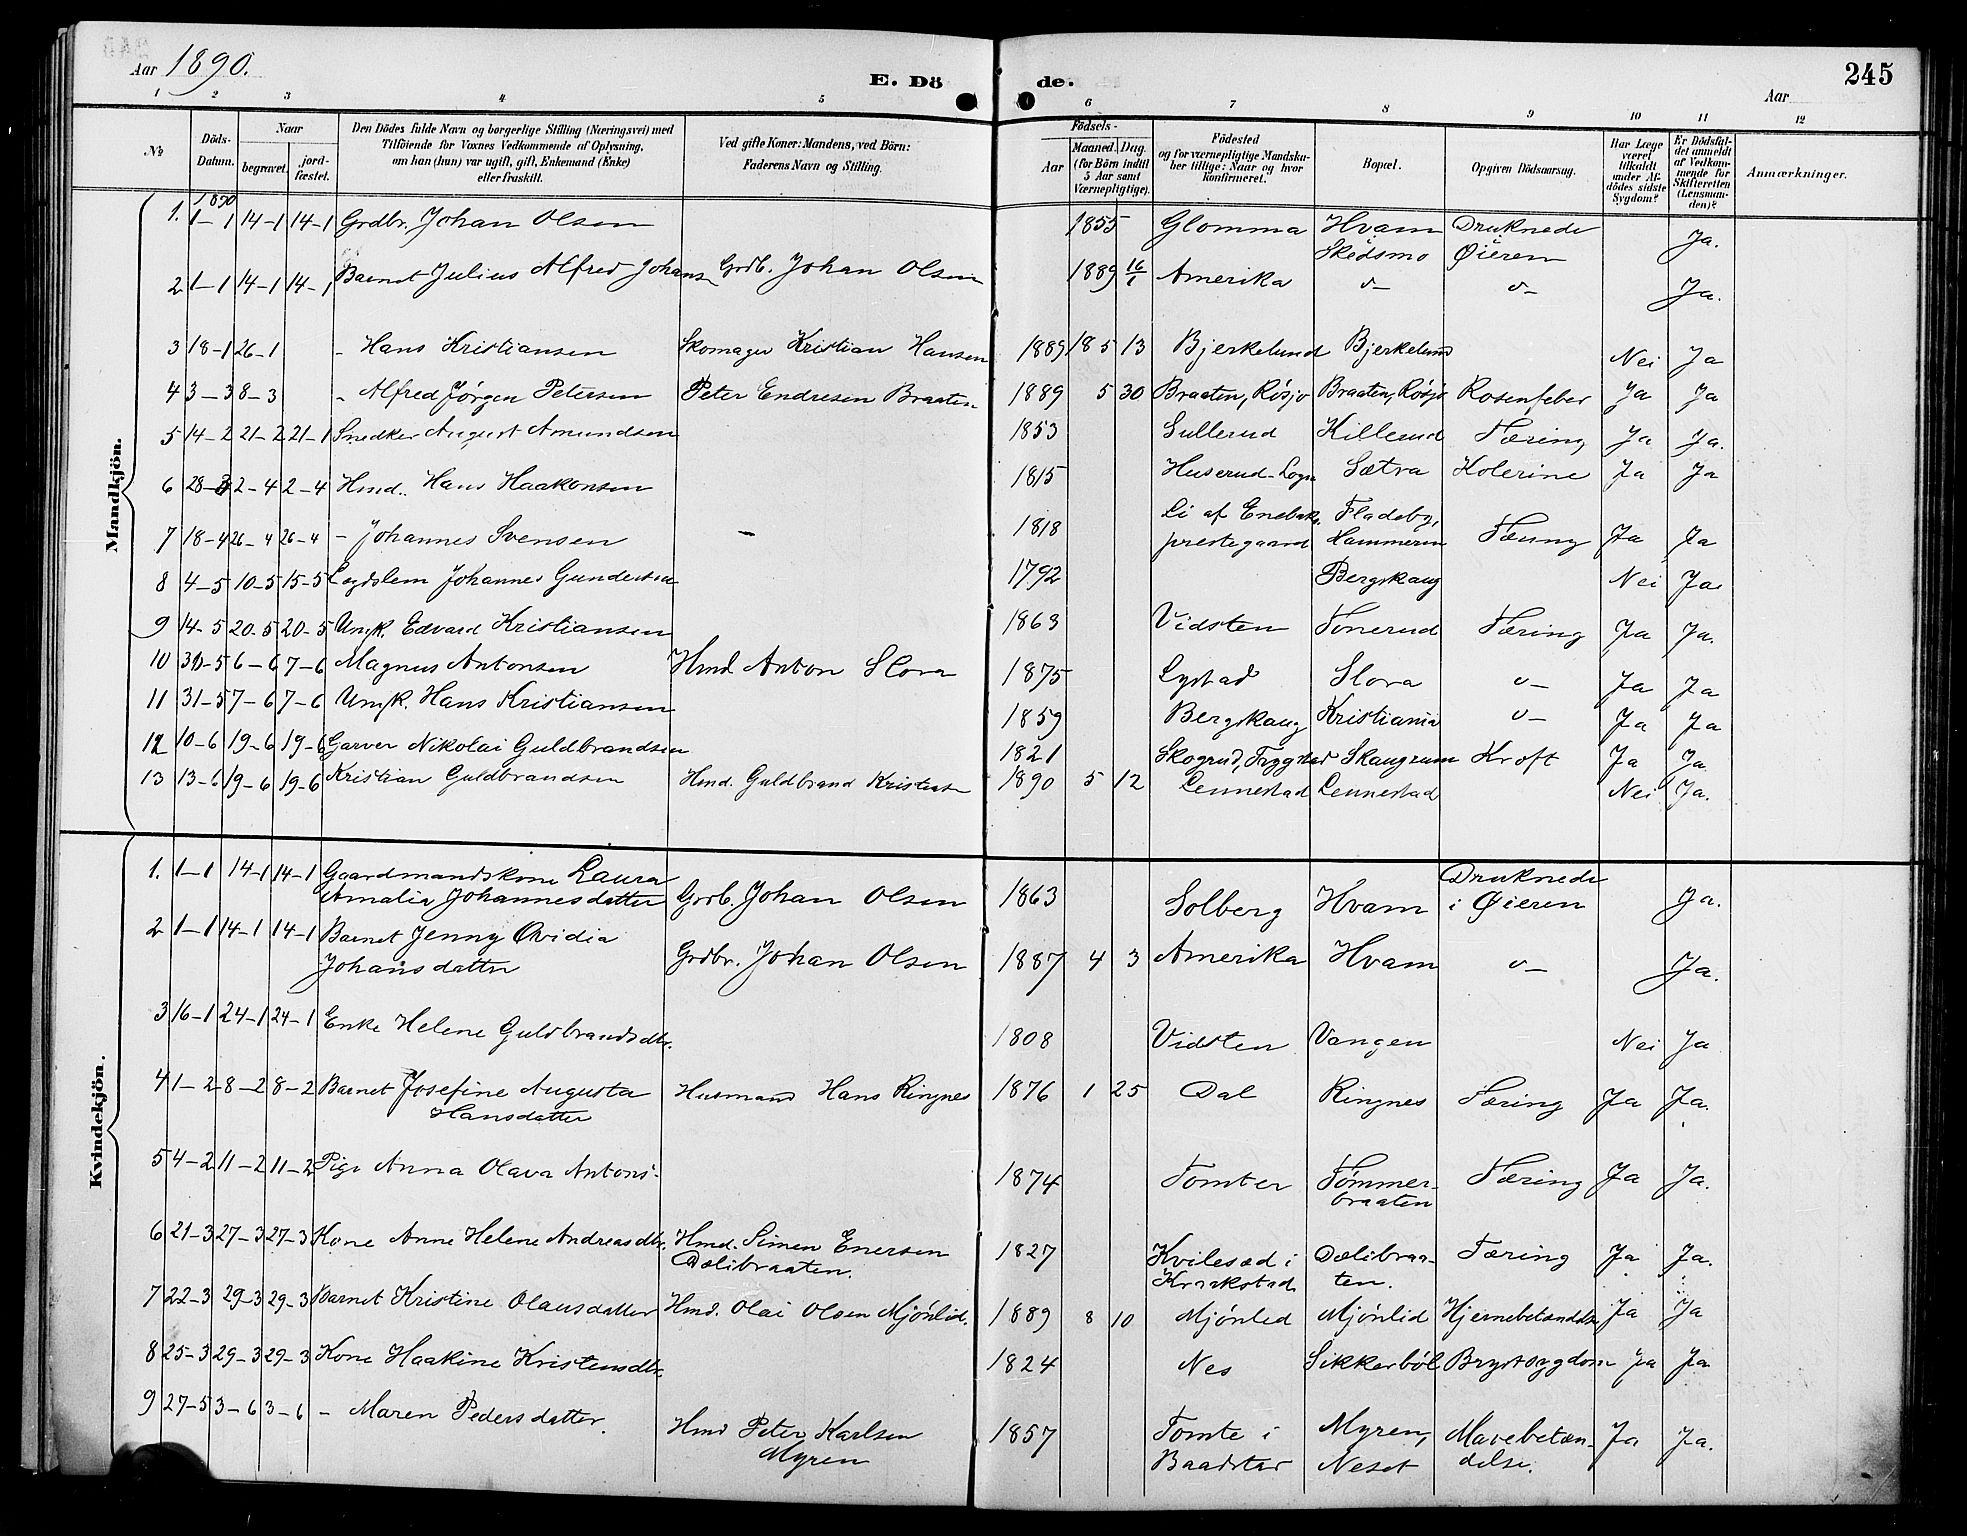 Aar 1890.
E. Döde.
Aar
245
1 2 3 4 5 6 7 8 9 10 11 12
No
Döds-Datum.
Naar
begravet.
jord-fæstet.
Den Dödes fulde Navn og borgerlige Stilling (Næringsvei) med
Tilföiende for Voxnes Vedkommende af Oplysning,
om han (hun) var ugift, gift, Enkemand (Enke)
eller fraskilt.
Ved gifte Koner: Mandens, ved Börn:
Faderens Navn og Stilling.
Födsels-
Aar
Maaned. Dag.
(for Börn indtil
5 Aar samt
Værnepligtige).
Födested
og for værnepligtige Mandska-
ber tillige: Naar og hvor
konfirmeret.
Bopæl.
Opgiven Dödsaarsag.
Har Læge
været
tilkaldt
under Af-
dödes sidste
Sygdom?
Er Dödsfal-
det anmeldt
af Vedkom-
mende for
Skifteretten
(Lensman-
den)?
Anmærkninger.
Mandkjön.
1890
1. 1-1 14-1 14-1 Grdbr. Johan Olsen 1855 Glomma Hvam Skedsmo Druknede Øieren Ja.
2 1-1 14-1 14-1 Barnet Julius Alfred Johans Grdb. Johan Olsen 1889 16/1 Amerika o- o- Ja.
3 18-1 26-1 - Hans Kristiansen Skomager Kristian Hansen 1889 18 5 13 Bjerkelund Bjerkelund Nei Ja
4 3-3 8-3 - Alfred Jørgen Petersen Peter Endresen Braaten 1889 5 30 Braaten, Røsjø Braaten, Røsjø Rosenfeber Ja Ja
5 14-2 21-2 21-1 Snedker August Amundsen 1853 Sullerud Killerud Tæring Ja Ja.
6 28-3 2-4 2-4 Hmd. Hans Haakonsen 1815 Huserud Sætra Kolerine Ja Ja
7 18-4 26-4 26-4 - Johannes Svensen - 1818 Li af Enebak. prestegaard Fladeby, Hammeren Tæring Ja Ja
8 4-5 10-5 15-5 Lægdslem Johannes Gundersen 1792 Bergskaug Nei Ja
9 14-5 20-5 20-5 Ungk. Edvard Kristiansen 1863 Vidsten Tonerud Tæring Ja Ja.
10 30-5 6-6 7-6 Magnus Antonsen Hmd Anton Slora 1875 Lystad Slora o- Ja Ja
11 31-5 7-6 7-6 Ungk. Hans Kristiansen 1859 Bergskaug Kristiania o- Ja Ja
12 10-6 19-6 19-6 Garver Nikolai Guldbrandsen 1821 Skogrud, Trygstad Skaugrum Kroft Ja Ja
13 13-6 19-6 19-6 Kristian Guldbrandsen Hmd. Guldbrand Kristians 1890 5 12 Lennestad Lennestad Nei Ja.
Kvindekjön.
1. 1-1 14-1 14-1 Gaardmandskone Laura
Amalia Johannesdatter Grdb. Johan Olsen 1863 Solberg Hvam Druknede i Øieren Ja.
2 1-1 14-1 14-1 Barnet Jenny Ovidia
Johansdatter Grdbr. Johan Olsen 1887 4 3 Amerika Hvam o- Ja.
3 16-1 24-1 24-1 Enke Helene Guldbrandsdtr. 1808 Vidsten Vangen Nei Ja
4 1-2 8-2 8-2 Barnet Josefine Augusta
Hansdatter Husmand Hans Ringnes 1876 1 25 Dal Ringnes Tæring Ja Ja.
5 4-2 11-2 11-2 Pige Anna Olava Antons. 1874 Tomter Tømmer-braaten Tæring Ja Ja.
6 21-3 27-3 27-3 Kone Anne Helene Andreasdtr. Hmd. Simen Enersen
Dælibraaten. 1827 Kvilesæd i Kraakstad Dælibraa-ten. Tæring Ja Ja.
7 22-3 29-3 29-3 Barnet Kristine Olausdatter Hmd. Olai Olsen Mjønlid. 1889 8 10 Mjønlid Mjønlid Hjernebetændelse Ja Ja
8 25-3 29-3 29-3 Kone Haakine Kristensdtr. 1824 Nes Sikkerbøl Brystsygdom Ja Ja
9 27-5 3-6 3-6 - Maren Pedersdatter. Hmd Peter Karlsen
Myren 1857 Tomte i Baadstad Myren, Neset Mavebetæn-delse. Ja Ja.